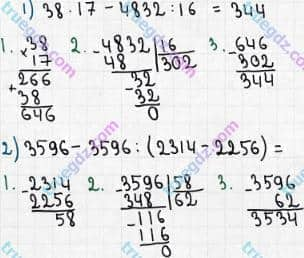 1) 38 · 17 - 4832 : 16 = 344
1. × 38
17
266
+ 38
646
2. - 4832 | 16
48 | 302
- 32
32
0
3. - 646
302
344
2) 3596 - 3596 : (2314 - 2256) =
1. - 2314
2256
58
2. - 3596 | 58
348 | 62
- 116
116
0
3. - 3596
62
3534